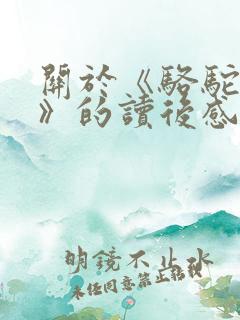 關於《駱駝
》的讀後感
明鏡不止水
未任同意禁止轉載